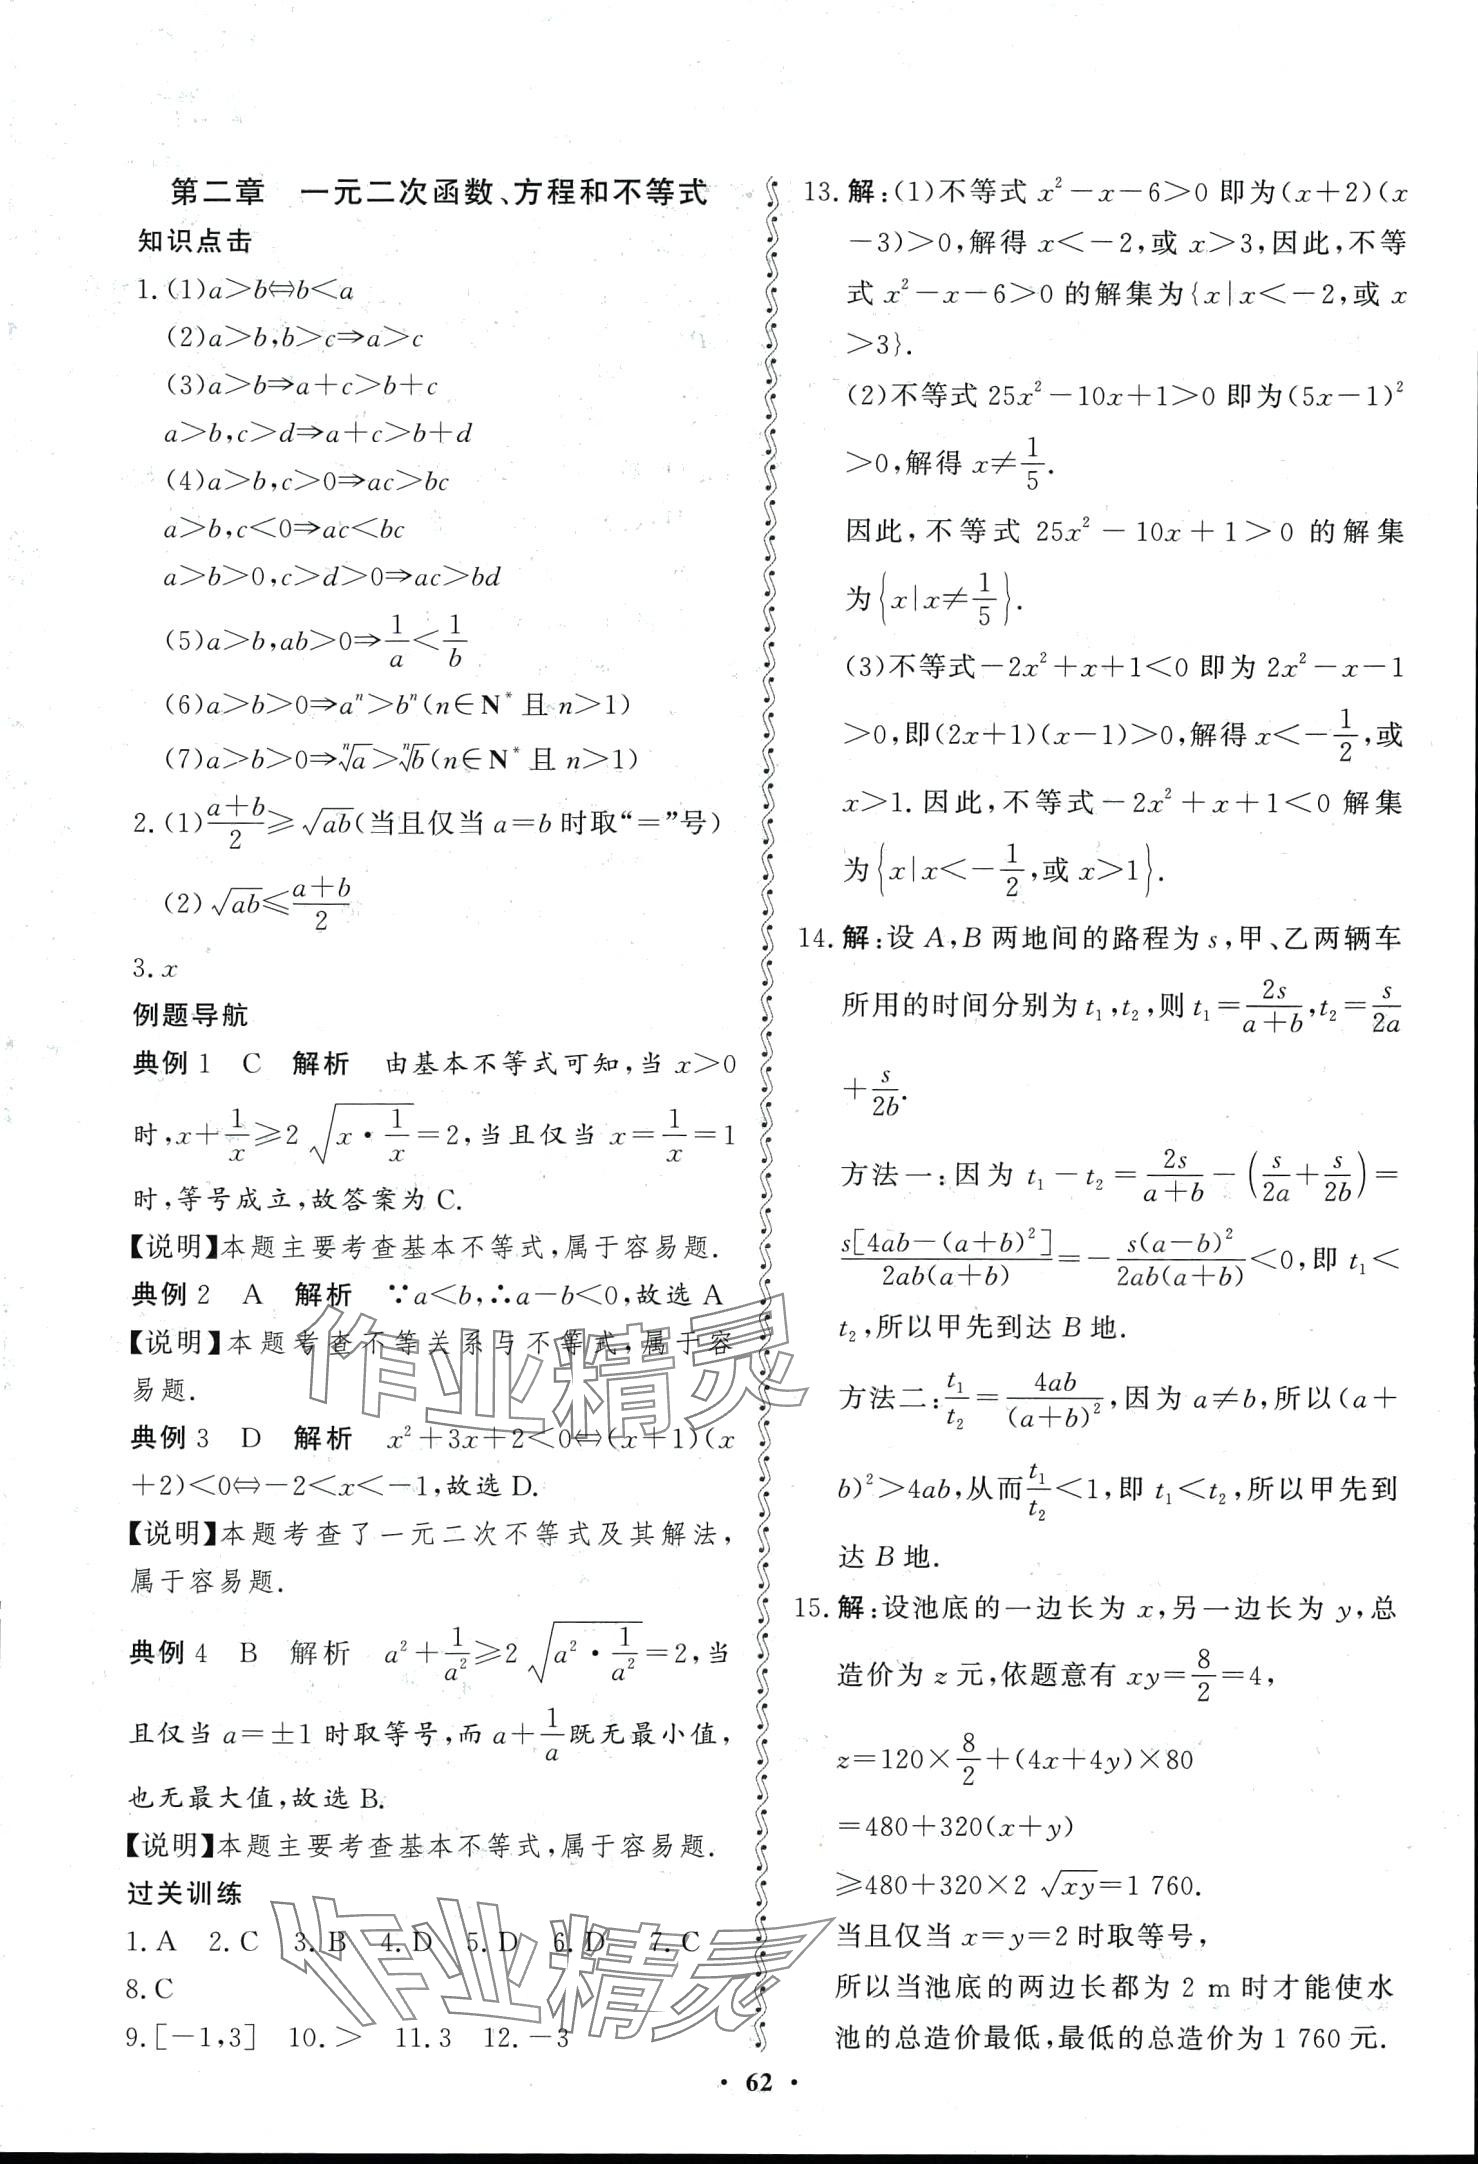 第二章　一元二次函数、方程和不等式
知识点击
1.(1)a＞b⇔b＜a
(2)a＞b,b＞c⇒a＞c
(3)a＞b⇒a＋c＞b＋c
a＞b,c＞d⇒a＋c＞b＋d
(4)a＞b,c＞0⇒ac＞bc
a＞b,c＜0⇒ac＜bc
a＞b＞0,c＞d＞0⇒ac＞bd
(5)a＞b,ab＞0⇒1/a＜1/b
(6)a＞b＞0⇒aⁿ＞bⁿ(n∈N*且n＞1)
(7)a＞b＞0⇒ⁿ√a＞ⁿ√b(n∈N*且n＞1)
2.(1)(a＋b)/2≥√ab(当且仅当a＝b时取“＝”号)
(2)√ab≤(a＋b)/2
3.x
例题导航
典例1　C　解析　由基本不等式可知,当x＞0
时,x＋1/x≥2√(x·1/x)＝2,当且仅当x＝1/x＝1
时,等号成立,故答案为C.
【说明】本题主要考查基本不等式,属于容易题.
典例2　A　解析　∵a＜b,∴a－b＜0,故选A
【说明】本题考查不等关系与不等式,属于容
易题.
典例3　D　解析　x²＋3x＋2＜0⇔(x＋1)(x
＋2)＜0⇔－2＜x＜－1,故选D.
【说明】本题考查了一元二次不等式及其解法,
属于容易题.
典例4　B　解析　a²＋1/a²≥2√(a²·1/a²)＝2,当
且仅当a＝±1时取等号,而a＋1/a既无最小值,
也无最大值,故选B.
【说明】本题主要考查基本不等式,属于容易题.
过关训练
1.A　2.C　3.B　4.D　5.D　6.D　7.C
8.C
9.[－1,3]　10.＞　11.3　12.－3
13.解:(1)不等式x²－x－6＞0即为(x＋2)(x
－3)＞0,解得x＜－2,或x＞3,因此,不等
式x²－x－6＞0的解集为{x|x＜－2,或x
＞3}.
(2)不等式25x²－10x＋1＞0即为(5x－1)²
＞0,解得x≠1/5.
因此,不等式25x²－10x＋1＞0的解集
为{x|x≠1/5}.
(3)不等式－2x²＋x＋1＜0即为2x²－x－1
＞0,即(2x＋1)(x－1)＞0,解得x＜－1/2,或
x＞1.因此,不等式－2x²＋x＋1＜0解集
为{x|x＜－1/2,或x＞1}.
14.解:设A,B两地间的路程为s,甲、乙两辆车
所用的时间分别为t₁,t₂,则t₁＝2s/(a＋b),t₂＝s/2a
＋s/2b.
方法一:因为t₁－t₂＝2s/(a＋b)－(s/2a＋s/2b)＝
s[4ab－(a＋b)²]/2ab(a＋b)＝－s(a－b)²/2ab(a＋b)＜0,即t₁＜
t₂,所以甲先到达B地.
方法二:t₁/t₂＝4ab/(a＋b)²,因为a≠b,所以(a＋
b)²＞4ab,从而t₁/t₂＜1,即t₁＜t₂,所以甲先到
达B地.
15.解:设池底的一边长为x,另一边长为y,总
造价为z元,依题意有xy＝8/2＝4,
z＝120×8/2＋(4x＋4y)×80
＝480＋320(x＋y)
≥480＋320×2√xy＝1 760.
当且仅当x＝y＝2时取等号,
所以当池底的两边长都为2 m时才能使水
池的总造价最低,最低的总造价为1 760元.
作业精灵
作业精灵
· 62 ·